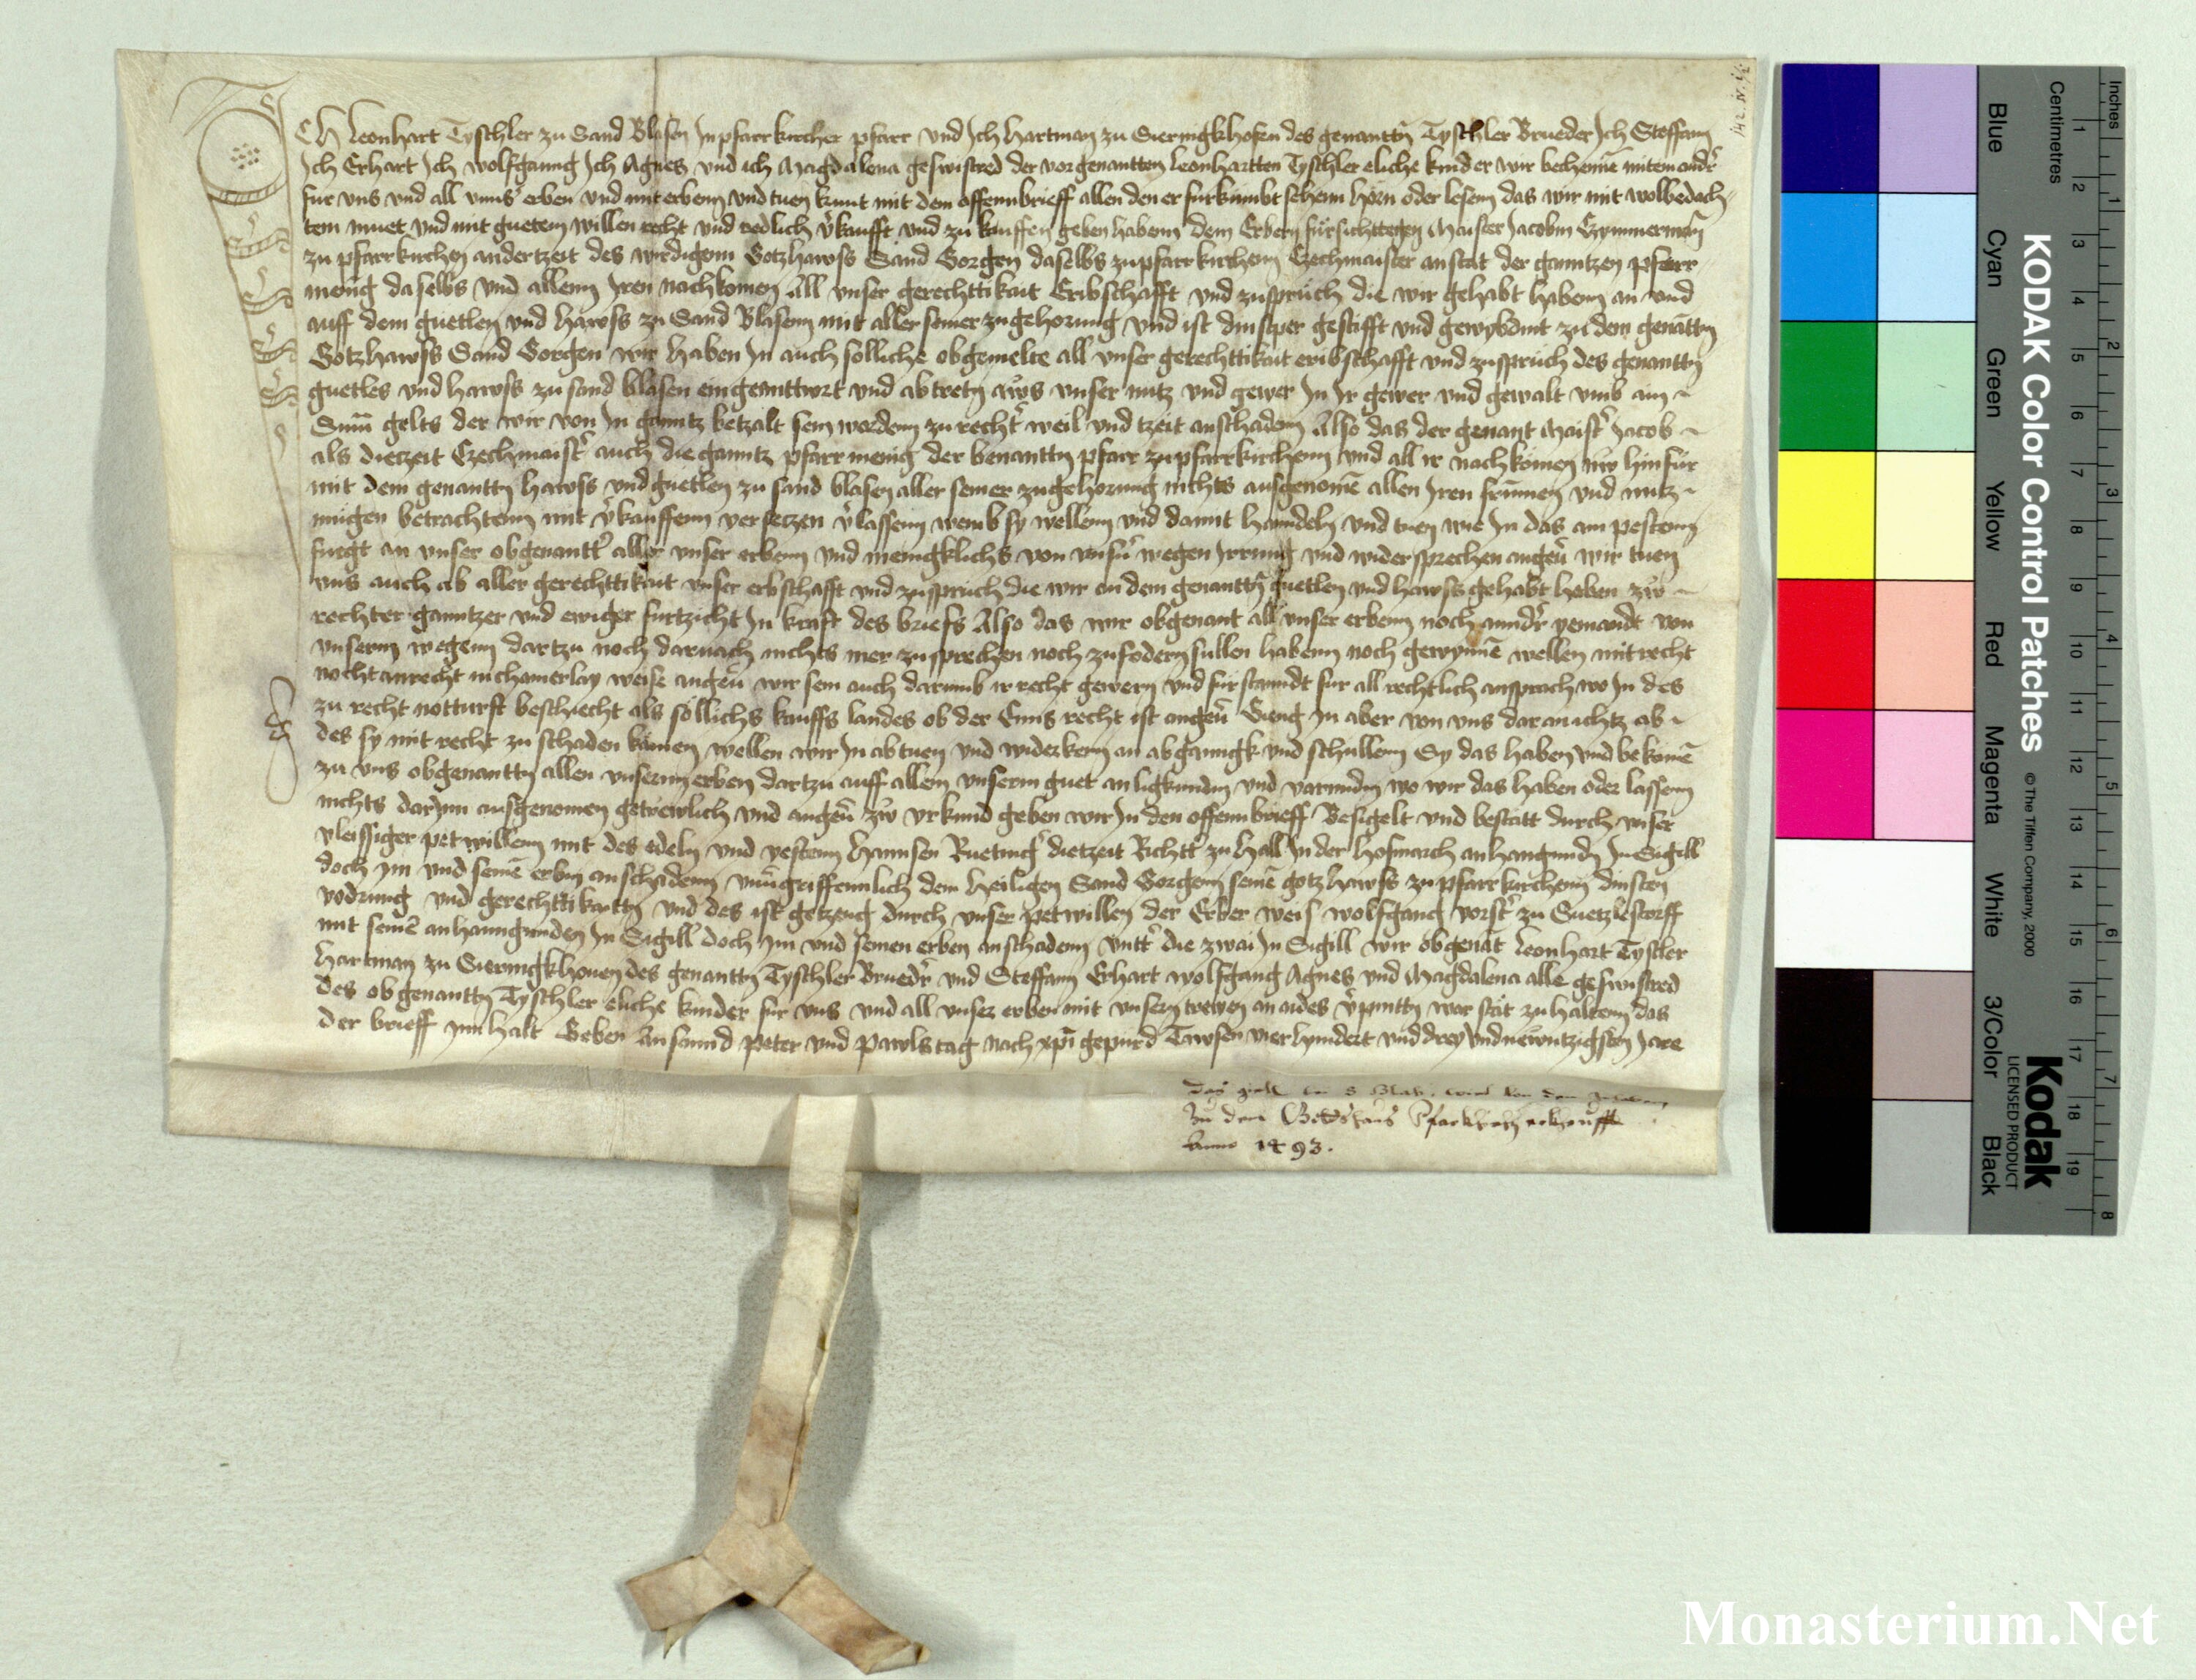 Ich Leonhart Tyschler zu Sand Blasen In pfarrkircher pfarr vnd Ich hartman zu Sieringkhofen des genanttn Tyschler Brueder Ich Steffann
Ich Erhart Ich wolfganng Ich Agnes vnd ich Magdalena geswistred der vorgenantten Leonhartten Tyschler eliche kinder wir bechenne mitenandr
fur vns vnd all vnns erben vnd miterbenn vnd tuen kunt mit dem offennbrieff allen den er furkumbt sehenn horn oder lesenn das wir mit wolbedach-
tem muet vnd mit guetem willen recht vnd redlich vkaufft vnd zu kauffen geben habenn dem Erbern fursichttegen Maister Jacobm Czymmerman
zu pfarrkirchen andertzeit des wirdigenn Gotzhawss Sand Gorgen daselbs zu pfarrkirchenn Czechmaister anstat der ganntzen pfarr
menig daselbs vnd allenn Iren nachkomen All vnser gerechttikait Eribschafft vnd zuspruch die wir gehabt habenn an vnd
auff dem guetlen vnd hawss zu Sand Blasenn mit aller seiner zugehorung vnd ist dinstper gestifft vnd gewydmt zu dem genattn
Gotzhawss Sand Gorgen wir haben In auch solliche obgemelte all vnser gerechttikait eribschafft vnd zuspruch des genanttn
guetles vnd hawss zu sand blasen eingeanttwort vnd abtretn aws vnser nutz vnd gewer In Ir gewer vnd gewalt vmb ain
Summ gelts der wir von In ganntz betzalt sein wordenn zu recht weil vnd tzeit anschadenn Also das der genant Maistr Jacob
als dietzeit Czechmaistr auch die ganntz pfarrmenig der benanttn pfarr zu pfarrkirchenn vnd all ir nachkomen nw hinfur
mit dem genanttn hawss vnd guetlen zu sand blasen aller seiner zugehorung nichts ausgenome allen Iren frumen vnd nutz
mugen betrachtenn mit vkauffenn versetzen vlassenn wemb sy wellenn vnd damit hanndeln vnd tuen wie In das am pestenn
fuegt an vnser obgenantt aller vnser erbenn vnd menigklichs von vnsr wegen Irrung vnd widersprechen angeu wir tuen
vns auch ab aller gerechttikait vnser erbschafft vnd zuspruch die wir an dem genanttn guetlen vnd hawss gehabt haben zw
rechter ganntzer vnd ewiger furtzicht In kraft des briefs Also das wir obgenant all vnser erbenn noch anndr yemandt von
vnsernn wegenn dartzu noch darnach nichts mer zusprechen noch zufodern sullen habenn noch gewynne wellen mit recht
noch anrecht in chainerlay weise angeu wir sein auch darumb ir recht gewern vnd furstanndt fur all rechtlich ansprach wo In des
zu recht notturft beschiecht als sollichs kauffs landes ob der Enns recht ist angeu Gieng In aber von vns daran ichtz ab
des sy mit recht zu schaden kamen wellen wir In abtuen vnd widerkern an abganngk vnd schullenn Sy das haben vnd bekome
zu vns obgenanttn allen vnsernn erben dartzu auff allem vnserm guet an ligkunndn vnd varunndn wo wir das haben oder lassenn
nichts darInn ausgenomen getrewlich vnd angeu zw vrkund geben wir In den offennbrieff Besigelt vnd bestatt durch vnser
vleissiger petwillenn mit des edeln vnd vestenn hannsen Rueting dietzeit Richtr zu hall In der hofmarch anhangundn In Sigill
doch Im vnd seine erbm anschadenn vnuigriffennlich dem heiligen Sand Gorgenn seine gotzhawss zu pfarrkirchenn dinsten
vodrung vnd gerechttikaittn vnd des ist getzeug durch vnser petwillen der Erber weis wolfgang vorstr zu Guetzlestorff
mit seine anhanngunden In Sigill doch Im vnd seinen erben anschadenn vntr die zwai In Sigill wir obgenat Leonhart Tyschler
hartman zu Sieringkhouen des genanttn Tyschler Bruedr vnd Steffann Erhart wolfgang Agnes vnd Magdalena alle geswistred
des obgenanttn Tyschler eliche kinder fur vns vnd all vnser erben mit vnsern trewen an aides vpinttn war stat zu haltenn das
der brieff Inn halt Geben An sannd Peter vnd Pawls tag nach xpi gepurd Tawsen vierhundert vnd drey vnd newntzigsten Jare
Zu dem Gottshaus Pfarkirch erkhaufft
Anno 1493.
KODAK Color Control Patches
© The Tiffen Company, 2000
Kodak
LICENSED PRODUCT
Inches
1 2 3 4 5 6 7 8
Centimetres
1 2 3 4 5 6 7 8 9 10 11 12 13 14 15 16 17 18 19
Blue Cyan Green Yellow Red Magenta White 3/Color Black
Monasterium.Net